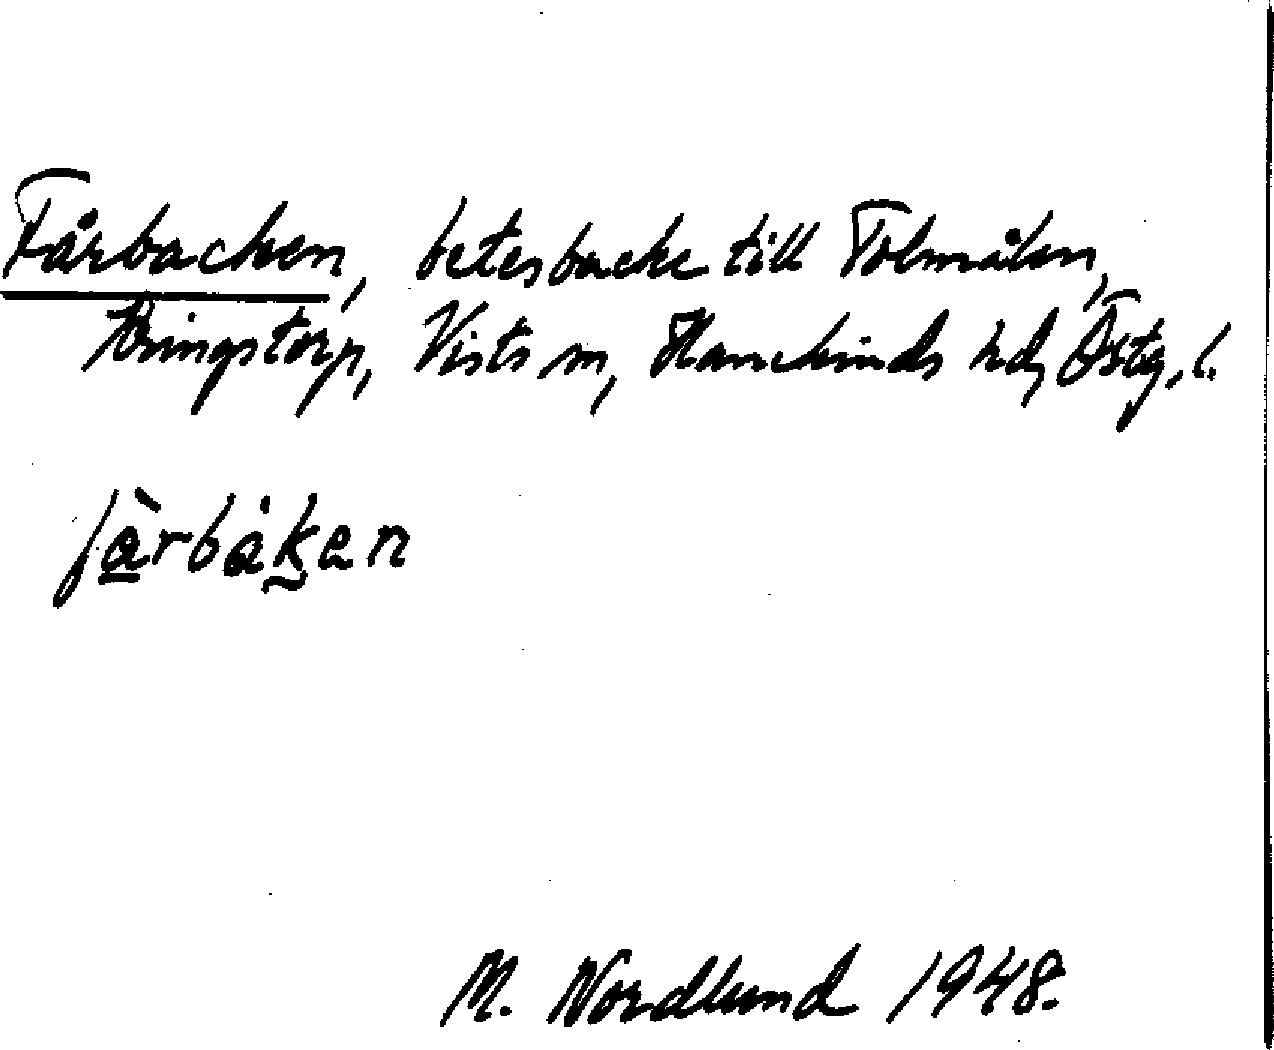 Fårbacken, betesbacke till Tolmålen,
Kringstorp, Vists sn, Hanekinds hd, Östg. l.
fàrbàken
M. Nordlund 1948.